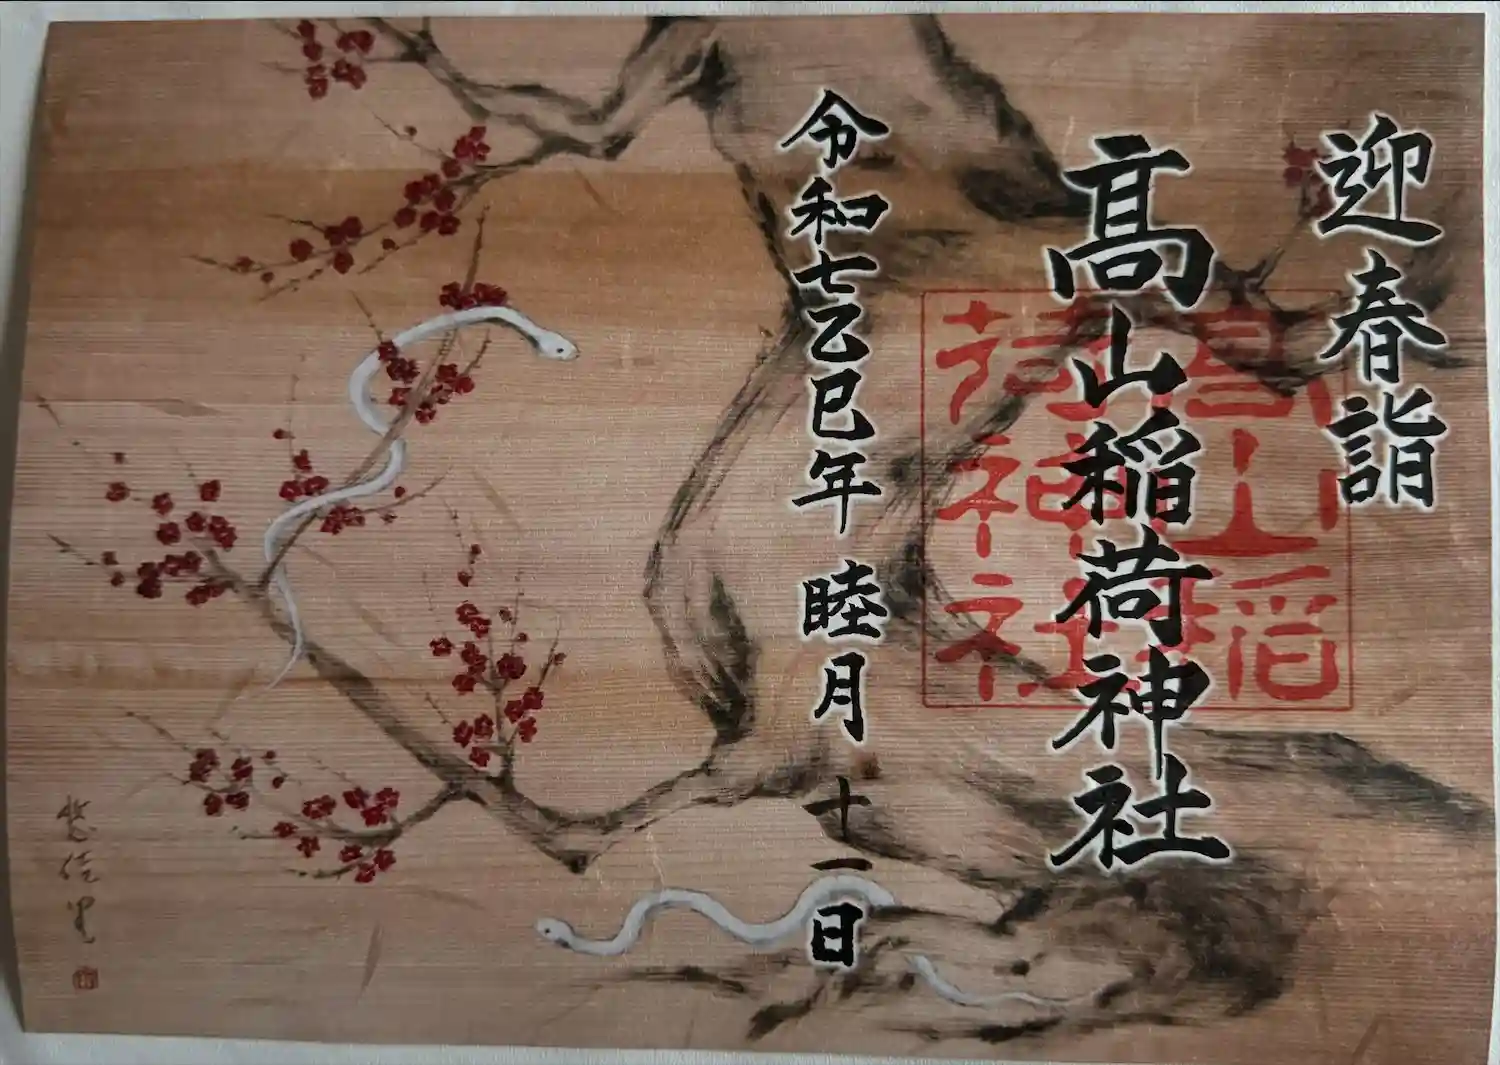 迎春詣
髙山稲荷神社
髙山稲荷神社
令和七乙巳年 睦月 十一日